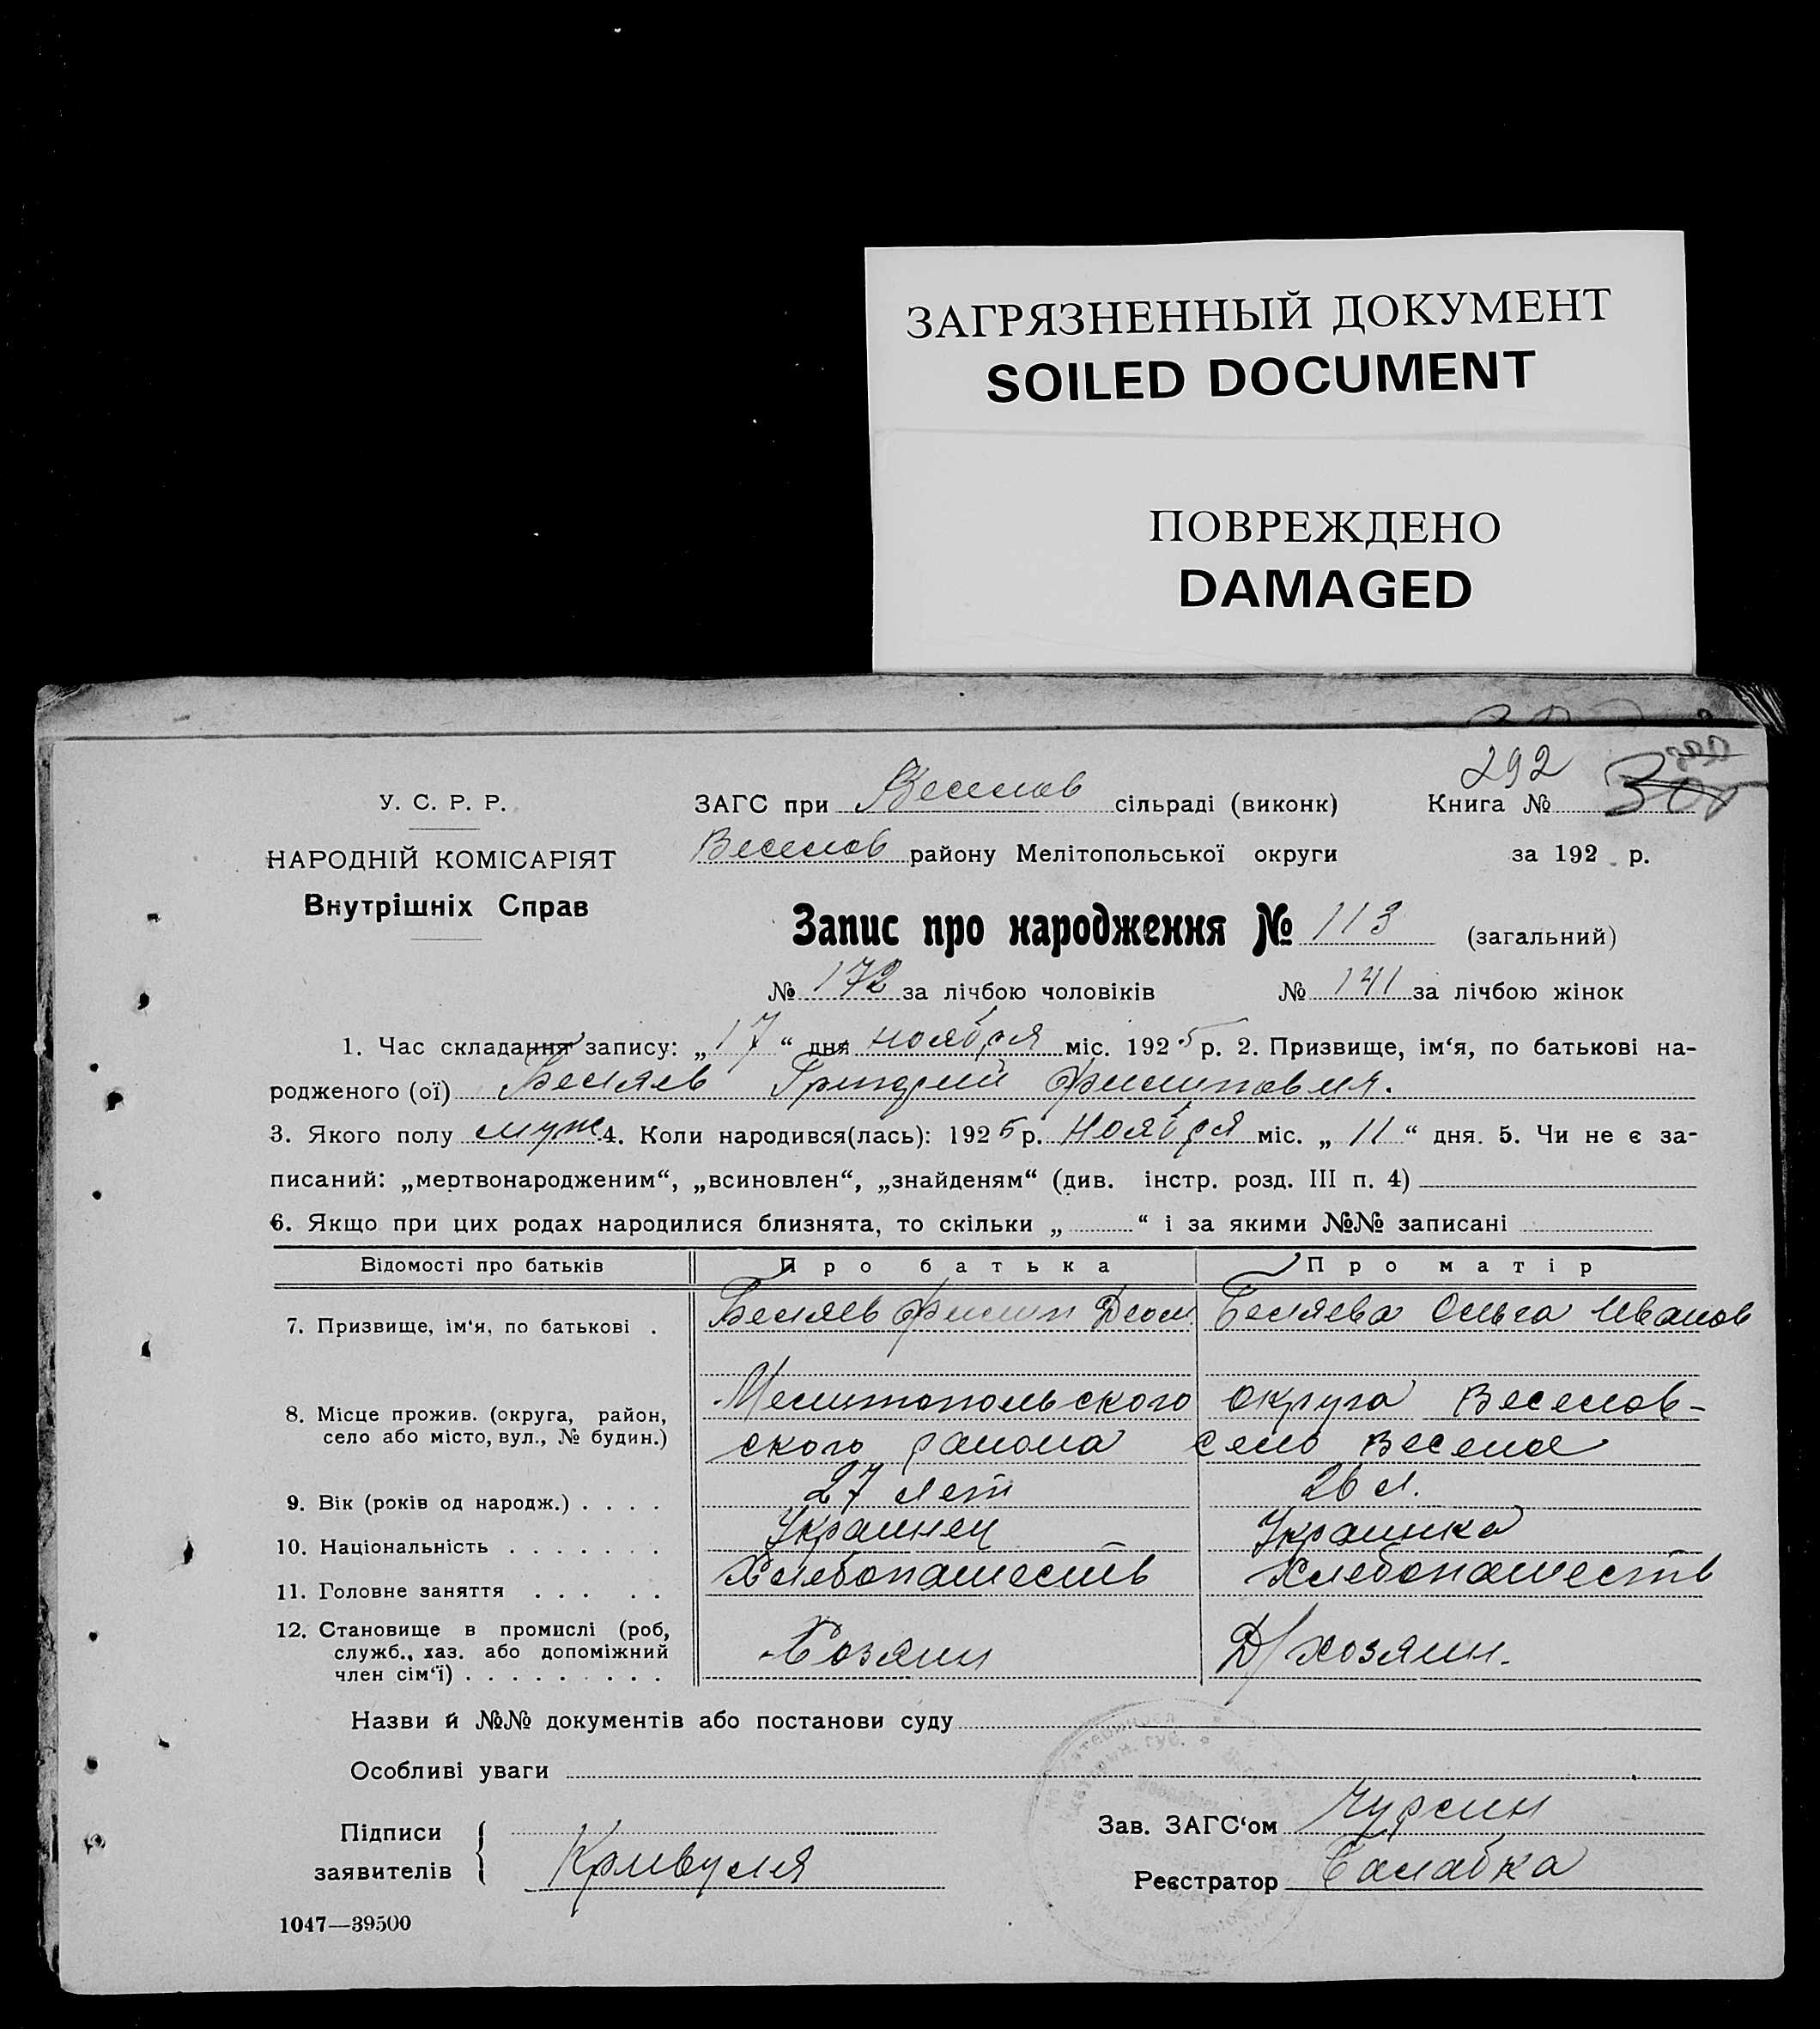 ЗАГРЯЗНЕННЫЙ ДОКУМЕНТ
SOILED DOCUMENT
ПОВРЕЖДЕНО
DAMAGED
292
У. С. Р. Р.
НАРОДНІЙ КОМІСАРІЯТ
Внутрішніх Справ
ЗАГС при Веселов сільраді (виконк) Книга №
Веселов району Мелітопольської округи за 192 р.
Запис про народження № 113 (загальний)
№ 172 за лічбою чоловіків № 141 за лічбою жінок
1. Час складання запису: „17“ дня ноября міс. 1925 р. 2. Призвище, ім‘я, по батькові на-
родженого (ої) Беляев Григорий Филипповия.
3. Якого полу муж 4. Коли народився(лась): 1925 р. Ноября міс. „11“ дня. 5. Чи не є за-
писаний: „мертвонародженим“, „всиновлен“, „знайденям“ (див. інстр. розд. III п. 4)
6. Якщо при цих родах народилися близнята, то скільки „ “ і за якими №№ записані
Відомості про батьків Про батька Про матір
7. Призвище, ім‘я, по батькові . Беляев Филип Беляева Ольга Иванов
8. Місце прожив. (округа, район, село або місто, вул., № будин.) Мелитопольского округа Веселов-
ского района село Веселое
9. Вік (років од народж.) . . . . 27 лет 26 л.
10. Національність . . . . . . . Украинец Украинка
11. Головне заняття . . . . . Хлебопашеств Хлебопашеств
12. Становище в промислі (роб, служб., хаз. або допоміжний член сім‘ї) . . . . . . . . . Хозяин Д/хозяин.
Назви й №№ документів або постанови суду
Особливі уваги
Підписи заявителів Кривуля
Зав. ЗАГС‘ом Чурсин
Реєстратор Балабка
1047—39500